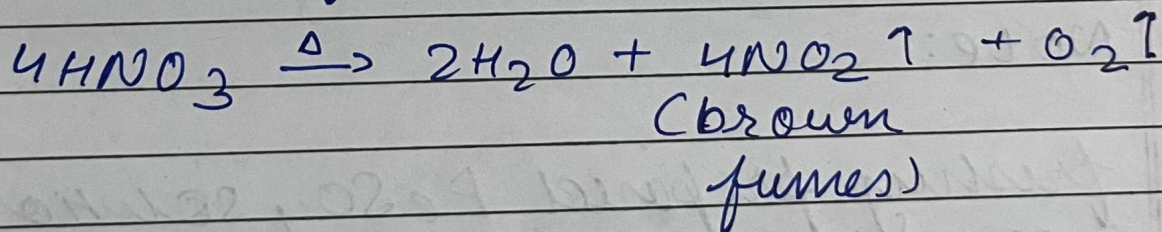 4HNO₃ →^Δ 2H₂O + 4NO₂↑ + O₂↑
(brown
fumes)